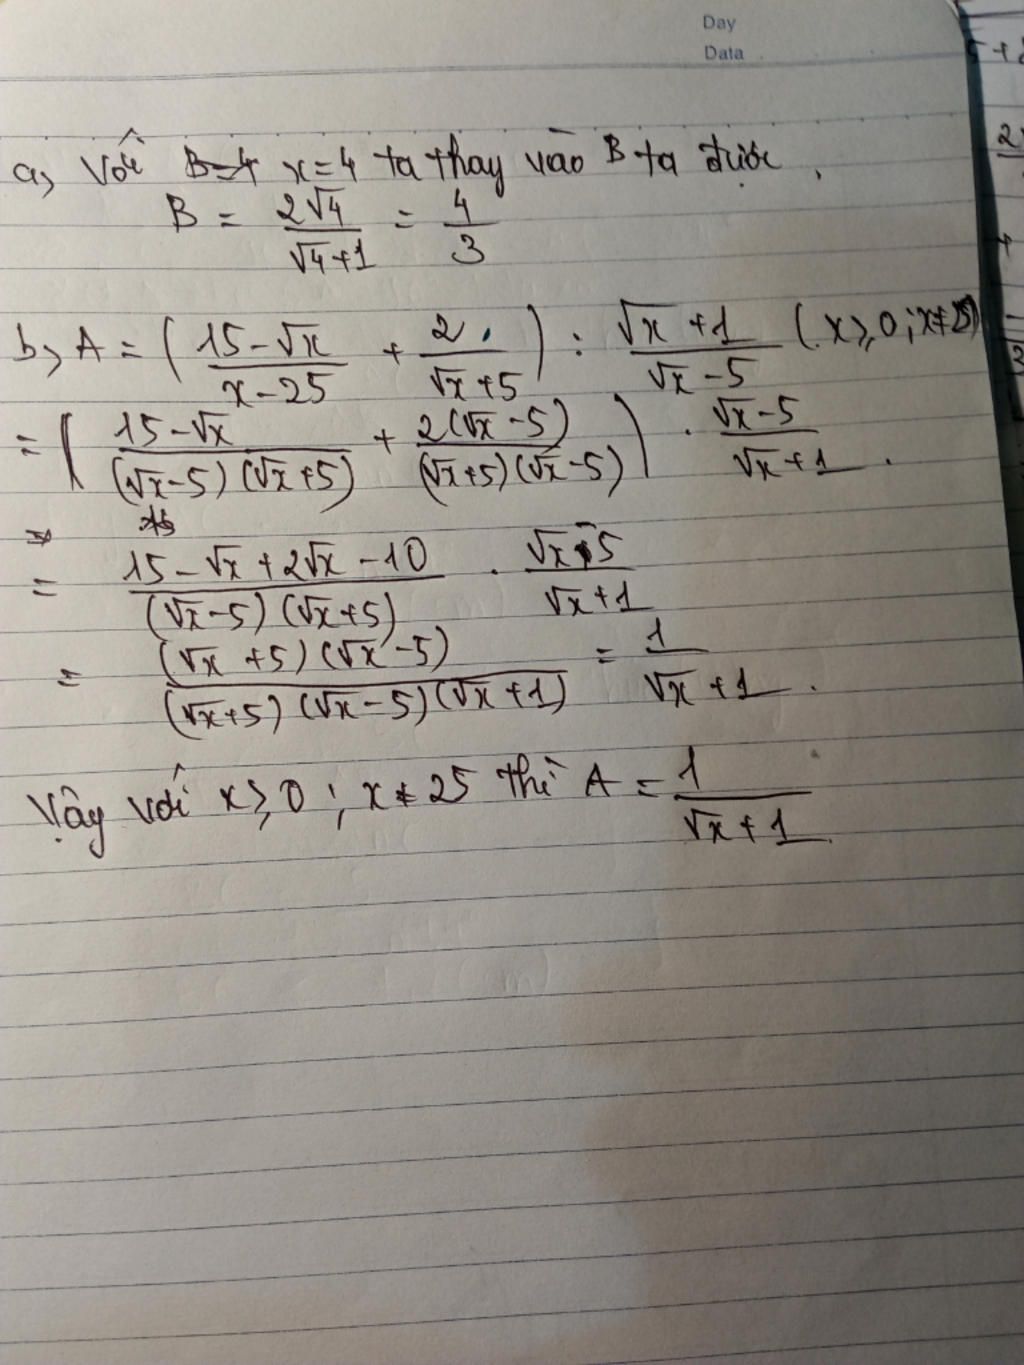 Day
Data
a, Với B=4 x=4 ta thay vào B ta được
B = 2√4/(√4+1) = 4/3
b, A = ( (15-√x)/(x-25) + 2/(√x+5) ) : (√x+1)/(√x-5) (x≥0; x≠25)
= ( (15-√x)/((√x-5)(√x+5)) + 2(√x-5)/((√x+5)(√x-5)) ) . (√x-5)/(√x+1)
= (15-√x+2√x-10)/((√x-5)(√x+5)) . (√x-5)/(√x+1)
= (√x+5)(√x-5)/((√x+5)(√x-5)(√x+1)) = 1/(√x+1).
Vậy với x≥0; x≠25 thì A = 1/(√x+1)